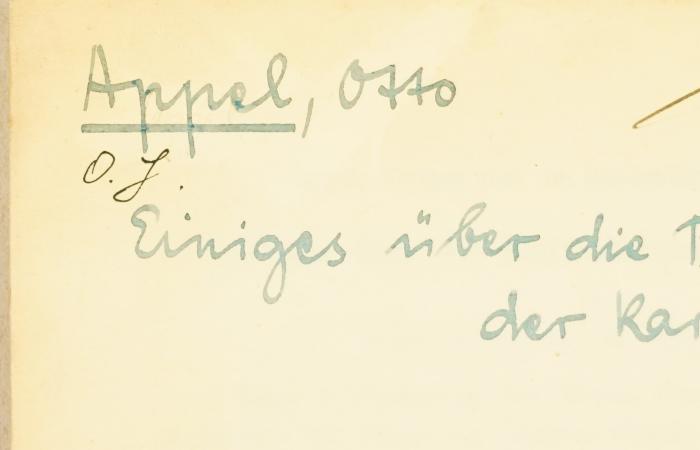 Appel, Otto
O. J.
Einiges über die
der